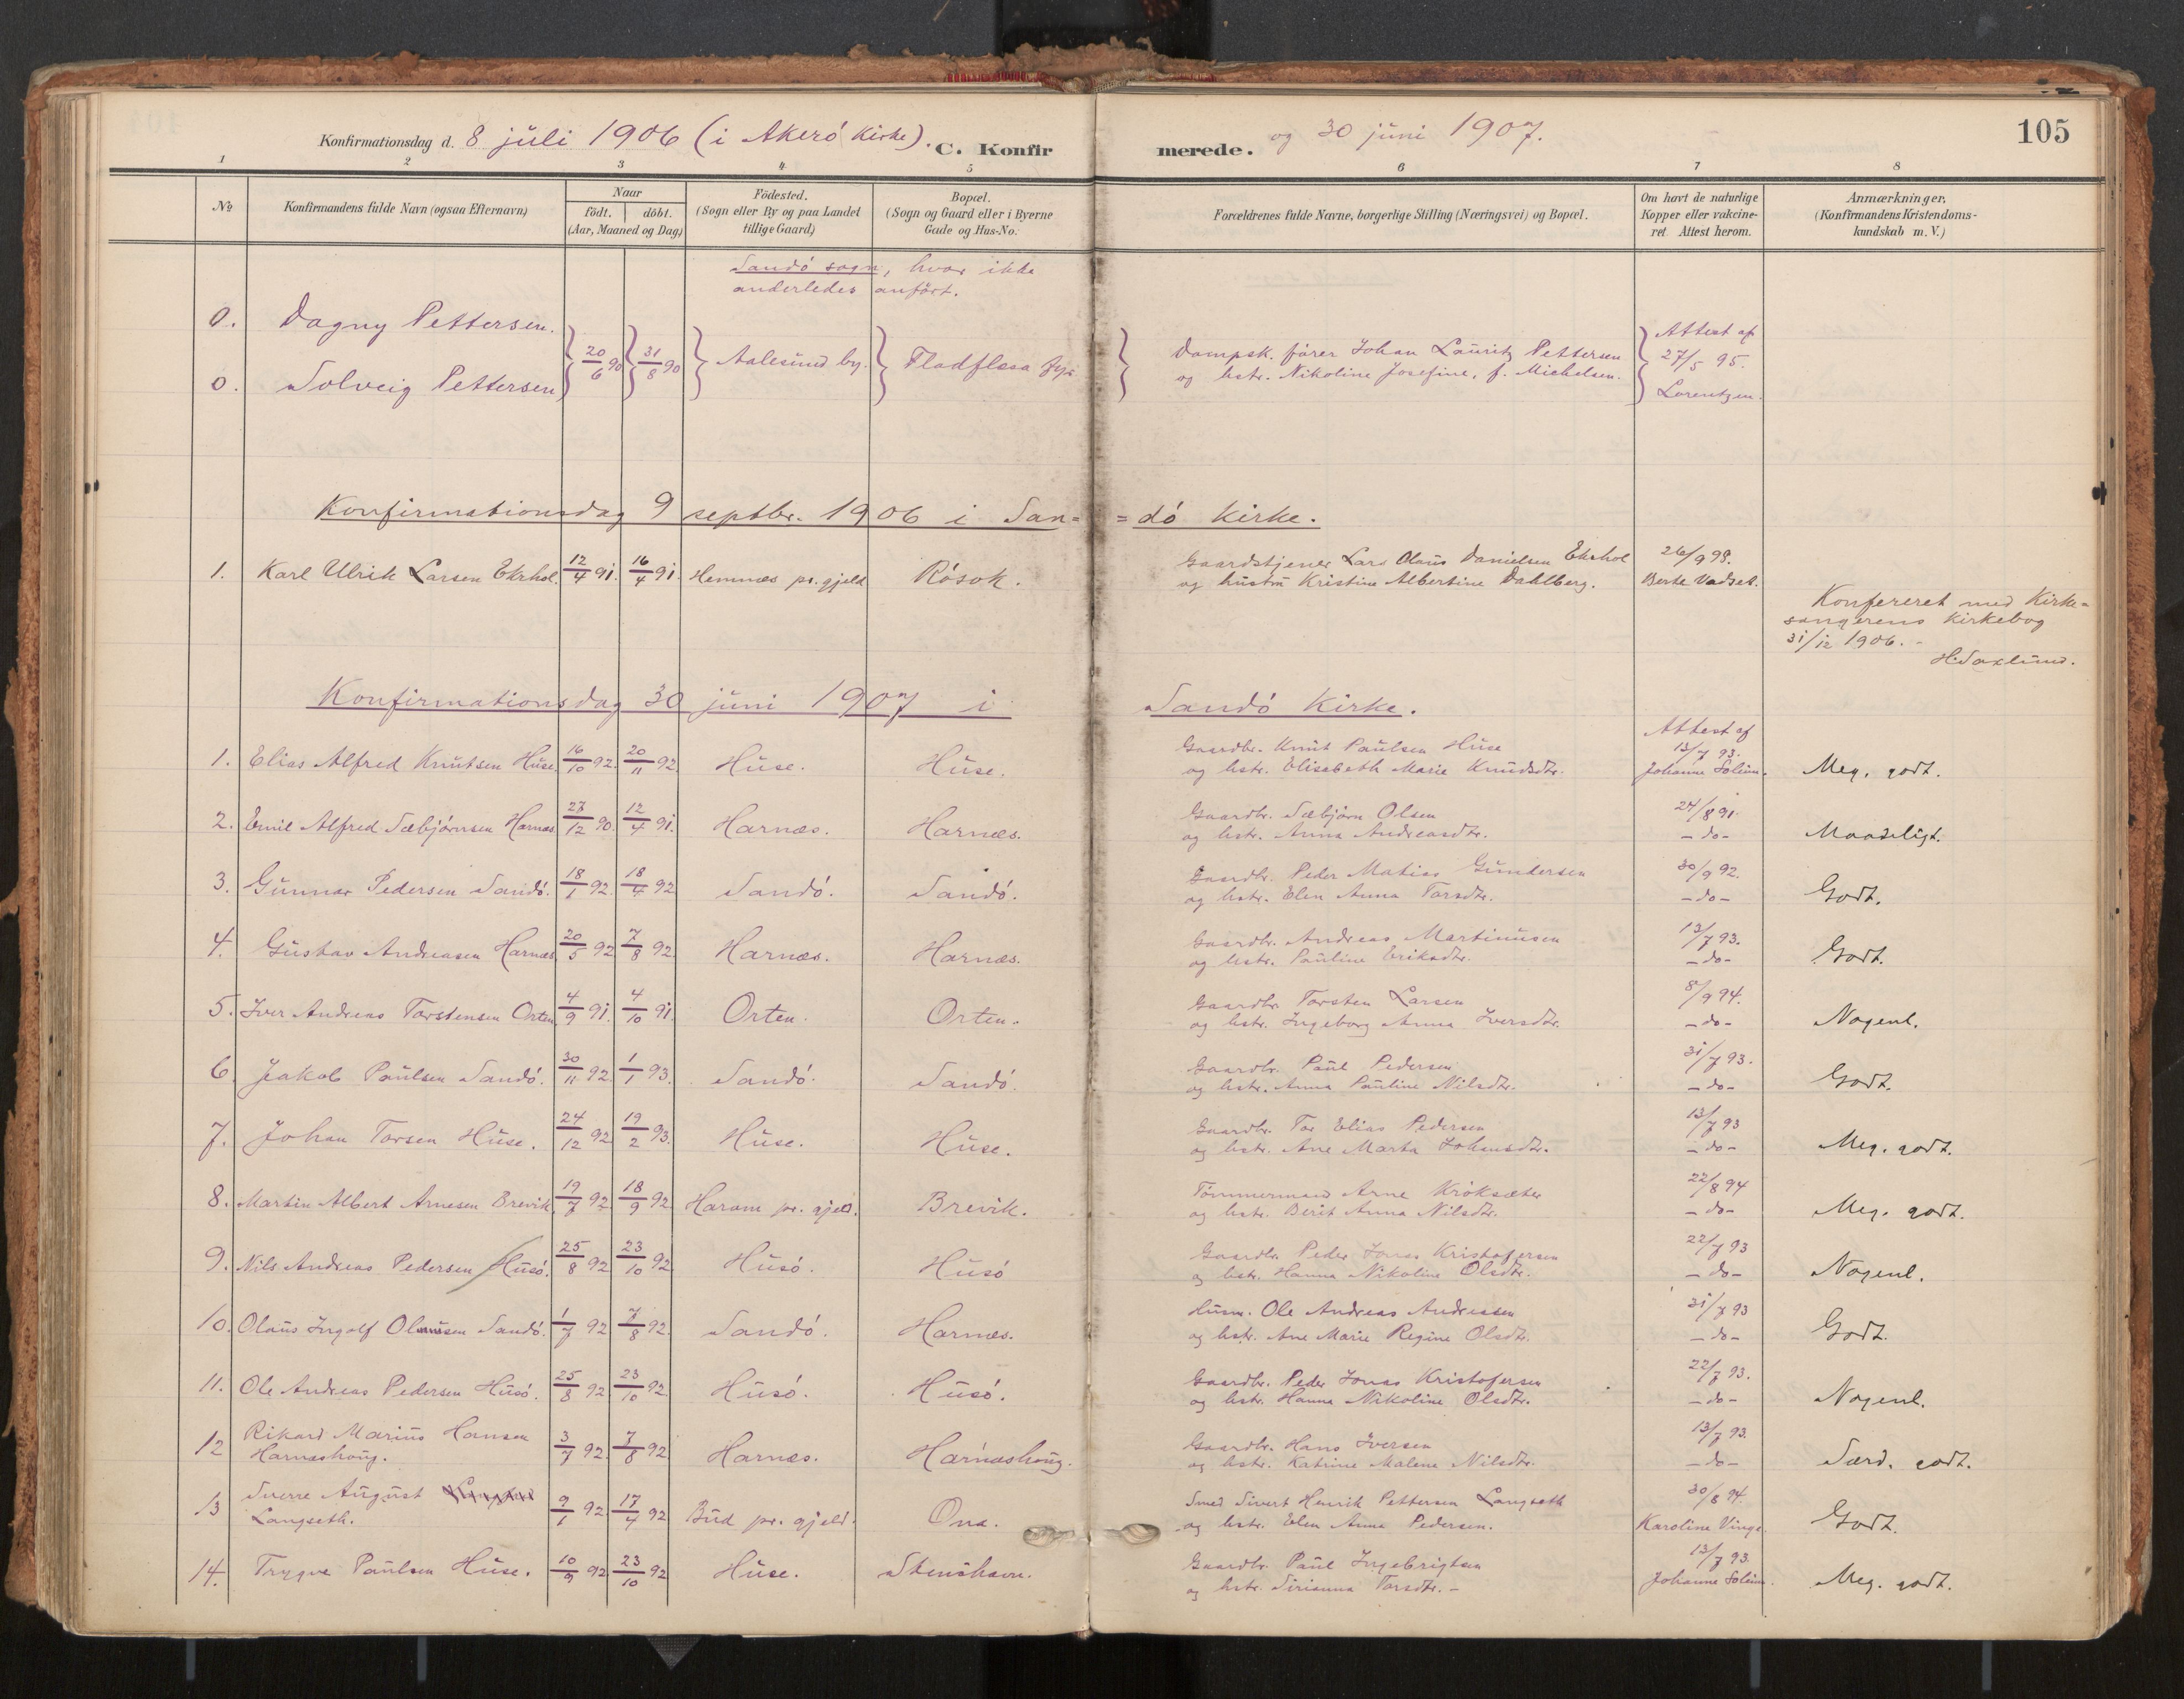 Konfirmationsdag d. 8 juli 1906 (i Akerö Kirke). C. Konfirmerede. og 30 juni 1907. 105
1 2 3 4 5 6 7 8
No Konfirmandens fulde Navn (ogsaa Efternavn) Naar födt. döbt. (Aar, Maaned og Dag) Födested. (Sogn eller By og paa Landet tillige Gaard) Bopæl. (Sogn og Gaard eller i Byerne Gade og Hus-No. Forældrenes fulde Navne, borgerlige Stilling (Næringsvei) og Bopæl. Om havt de naturlige Kopper eller vakcineret Attest herom. Anmærkninger. (Konfirmandens Kristendomskundskab m. V.)
Sandö sogn, hvor ikke
anderledes anfört.
0. Dagny Pettersen.
0. Solveig Pettersen } 20/6 90 } 31/8 90 } Aalesund by. } Fladflæsa fyr } Dampsk. förer Johan Lauritz Pettersen
og hstr. Nikoline Josefine, f. Michelsen. } Attest af
27/5 95.
Lorentzen.
Konfirmationsdag 9 septbr. 1906 i San= =dö Kirke.
1. Karl Ulrik Larsen Ekrhol. 12/4 91. 16/4 91. Hemnes pr. gjeld Rösok. Gaardstjener Lars Olaus Danielsen Ekrhol
og hustru Kristine Albertine Dahlberg. 26/9 98.
Berte Vadset.
Konfereret med Kirke=
sangerens Kirkebog
31/12 1906. -
H. Saxlund.
Konfirmationsdag 30 juni 1907 i Sandö Kirke.
1. Elias Alfred Knutsen Huse. 16/10 92. 20/11 92. Huse. Huse. Gaardbr. Knut Paulsen Huse
og hstr. Elisebeth Marie Knudsdtr. Attest af
13/7 93.
Johanne Solem. Meg. godt.
2. Emil Alfred Sæbjörnsen Harnæs. 27/12 90. 12/4 91. Harnæs. Harnæs. Gaardbr. Sæbjörn Olsen
og hstr. Anna Andreasdtr. 24/8 91.
- do - Maadeligt.
3. Gunnar Pedersen Sandö. 18/1 92. 18/4 92. Sandö. Sandö. Gaardbr. Peder Matias Gundersen
og hstr. Elen Anna Torsdtr. 30/9 92.
- do - Godt.
4. Gustav Andreasen Harnæs 20/5 92. 7/8 92. Harnæs. Harnæs. Gaardbr. Andreas Martinusen
og hstr. Pauline Eriksdtr. 13/7 93.
- do - Godt.
5. Iver Andreas Torstensen Orten 4/9 91. 4/10 91. Orten. Orten. Gaardbr. Torsten Larsen
og hstr. Ingeborg Anna Iversdtr. 8/9 94.
- do - Nogenl.
6. Jakob Paulsen Sandö. 30/11 92. 1/1 93. Sandö. Sandö. Gaardbr. Paul Pedersen
og hstr. Anna Pauline Nilsdtr. 31/7 93.
- do - Godt.
7. Johan Torsen Huse. 24/12 92. 19/2 93. Huse. Huse. Gaardbr. Tor Elias Pedersen
og hstr. Ane Marta Johansdtr. 13/7 93
- do - Meg. godt.
8. Martin Albert Arnesen Brevik. 19/7 92. 18/9 92. Haram pr. gjeld. Brevik. Tömmermand Arne Kroksæter
og hstr. Berit Anna Nilsdtr. 22/8 94
- do - Meg. godt.
9. Nils Andreas Pedersen Husö. 25/8 92. 23/10 92. Husö. Husö Gaardbr. Peder Jonas Kristofersen
og hstr. Hanna Nikoline Olsdtr. 22/7 93
- do - Nogenl.
10. Olaus Ingolf Olausen Sandö. 1/7 92. 7/8 92. Sandö. Harnæs. Husm. Ole Andreas Andreasen
og hstr. Ane Marie Regine Olsdtr. 31/7 93
- do - Godt.
11. Ole Andreas Pedersen Husö. 25/8 92. 23/10 92. Husö. Husö. Gaardbr. Peder Jonas Kristofersen
og hstr. Hanna Nikoline Olsdtr. 22/7 93.
- do - Nogenl.
12 Rikard Marius Hansen
Harnæshaug. 3/7 92. 7/8 92. Harnæs. Harnæshaug. Gaardbr. Hans Iversen
og hstr. Katrine Malene Nilsdtr. 13/7 93.
- do - Særd. godt.
13 Sverre August
Langseth. 9/1 92. 17/4 92. Bud pr. gjeld. Ona. Smed Sivert Henrik Pettersen Langseth
og hstr. Elen Anna Pedersen. 30/8 94.
Karoline Vinge. Godt.
14. Trygve Paulsen Huse. 10/9 92 23/10 92 Huse. Stenshavn. Gaardbr. Paul Ingebrigtsen
og hstr. Sirianna Torsdtr. - 13/7 93.
Johanne Solem. Meg. godt.